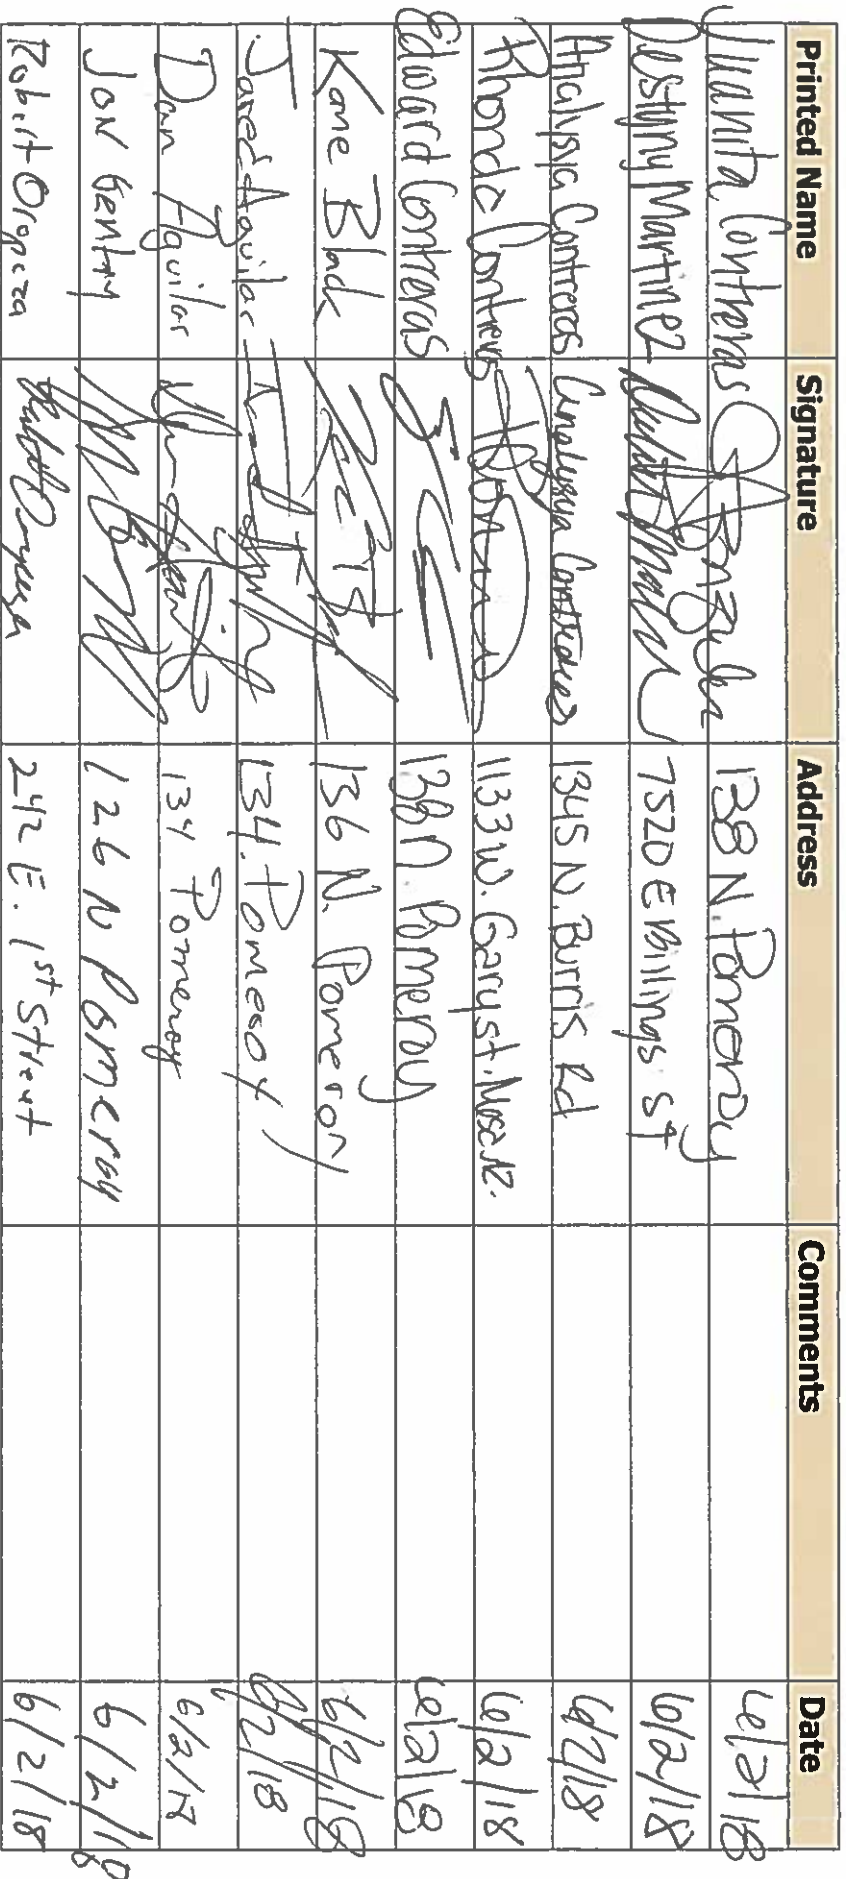 Printed Name Signature Address Comments Date
Juanita Contreras 138 N. Pomeroy 6/2/18
Destyny Martinez 7520 E Billings St 6/2/18
Analysia Contreras Analysia Contreras 1345 N. Burris Rd 6/2/18
Rhonda Contreras 1133 W. Gary st. Mesa AZ. 6/2/18
Edward Contreras 138 N. Pomeroy 6/2/18
Kane Black 136 N. Pomeroy 6/2/18
Jared Aguilar 134. Pomeroy 6/2/18
Dan Aguilar 134 Pomeroy
Jon Gentry 126 N Pomeroy 6/2/18
Robert Oropeza 242 E. 1st Street 6/2/18